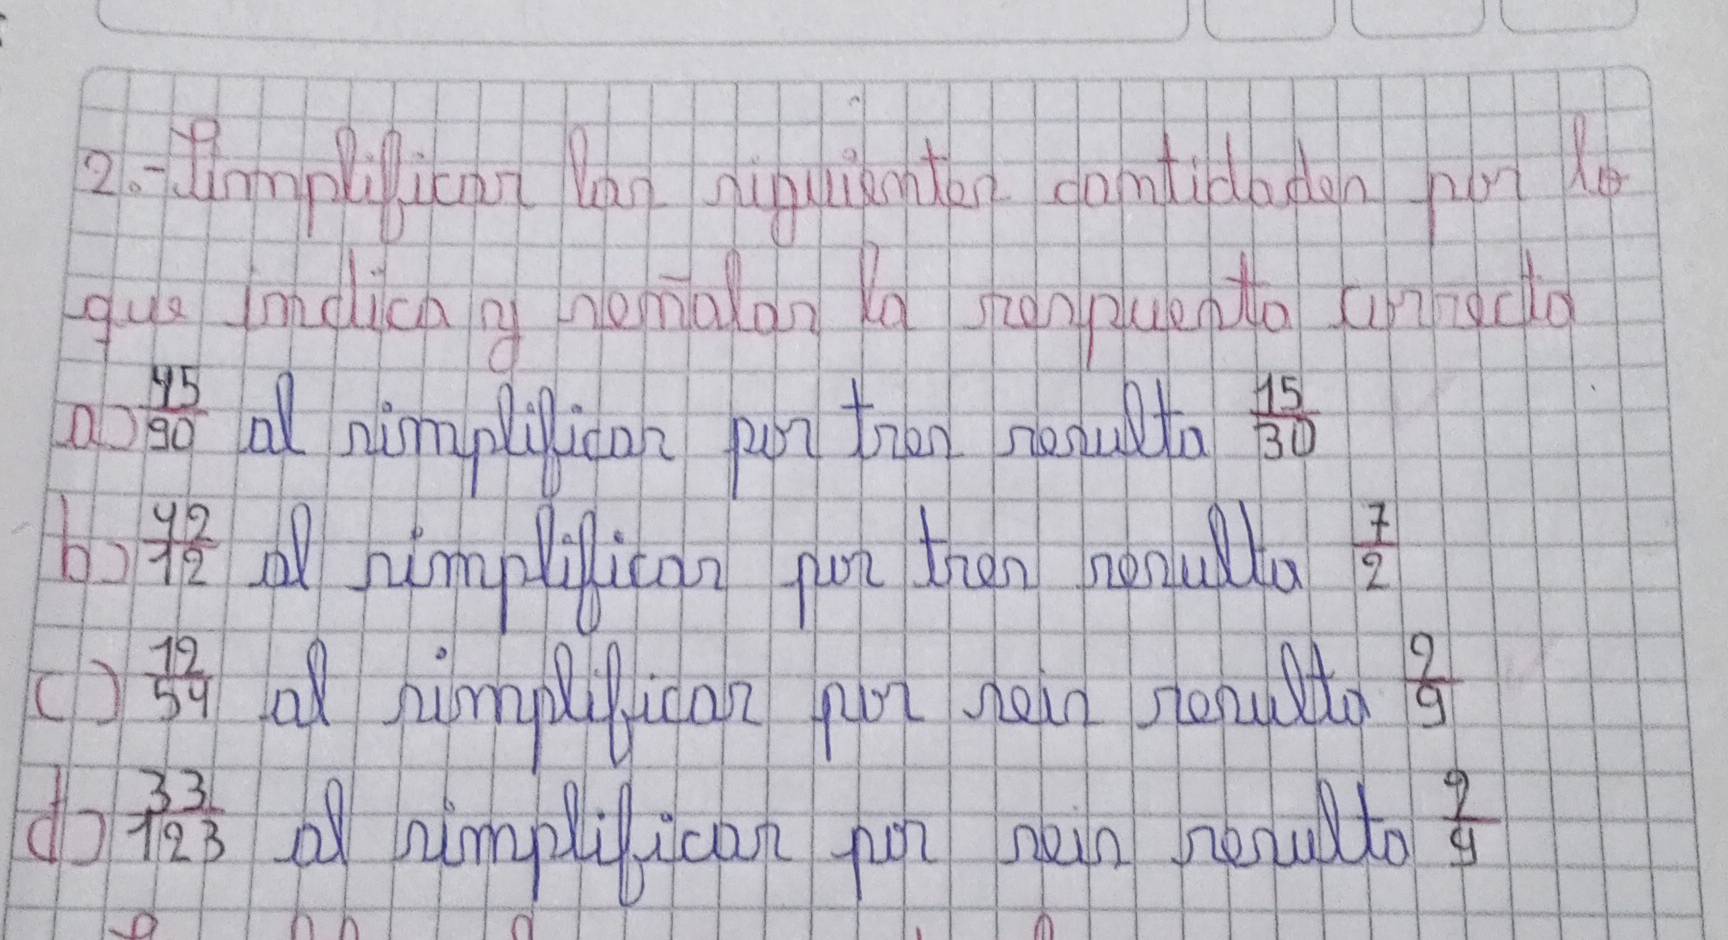 2.- Simplificar las siguientes cantidades por lo
que indica y señalar la respuesta correcta
a) 45/90 al simplificar por tres resulta 15/30
b) 42/12 al simplificar por tres resulta 7/2
c) 12/54 al simplificar por seis resulta 2/9
d) 33/123 al simplificar por seis resulta 2/9